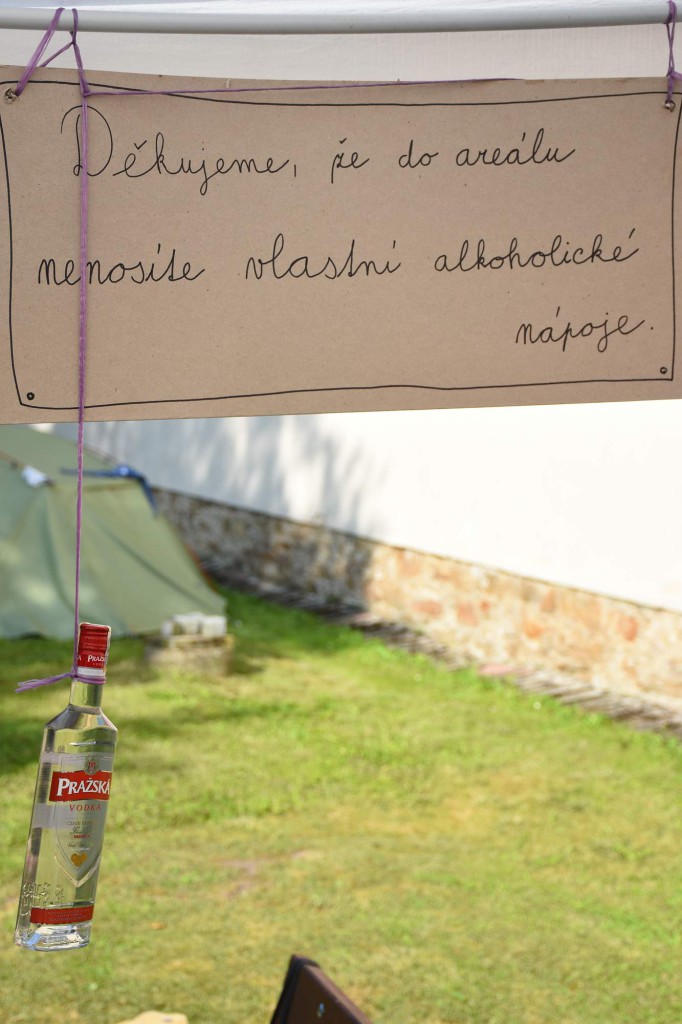 Děkujeme, že do areálu
nenosíte vlastní alkoholické
nápoje.
PRAŽSKÁ
VODKA